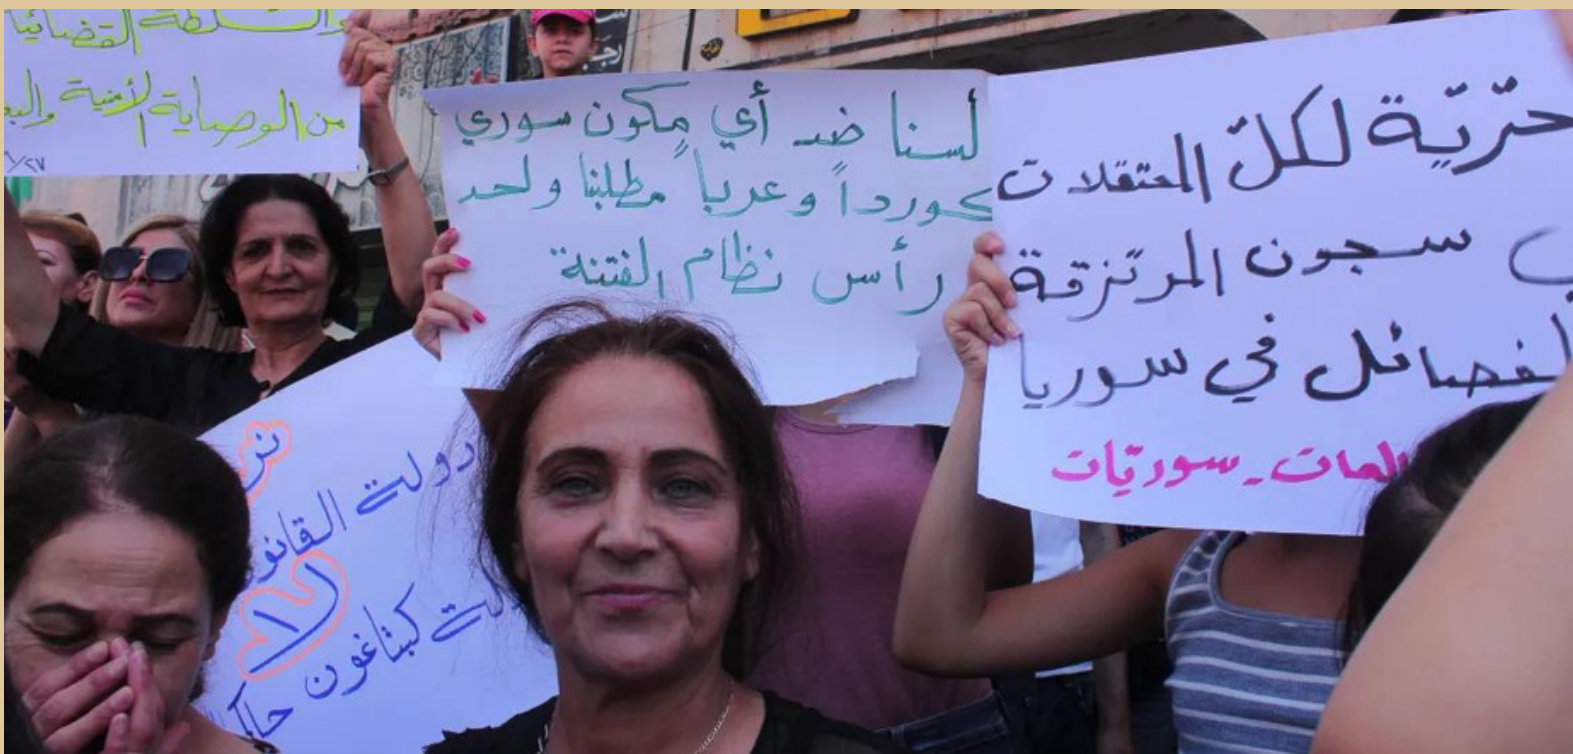 والسلطة القضائية
من الوصاية الأمنية
٦/٢٧
لسنا ضد أي مكون سوري
كورداً و عرباً مطلبنا واحد
رأس نظام الفتنة
حرّيّة لكلّ المعتقلات
سجون المرتزقة
لفصائل في سوريا
سوريّات
دولة القانو
لا
كبتاغون